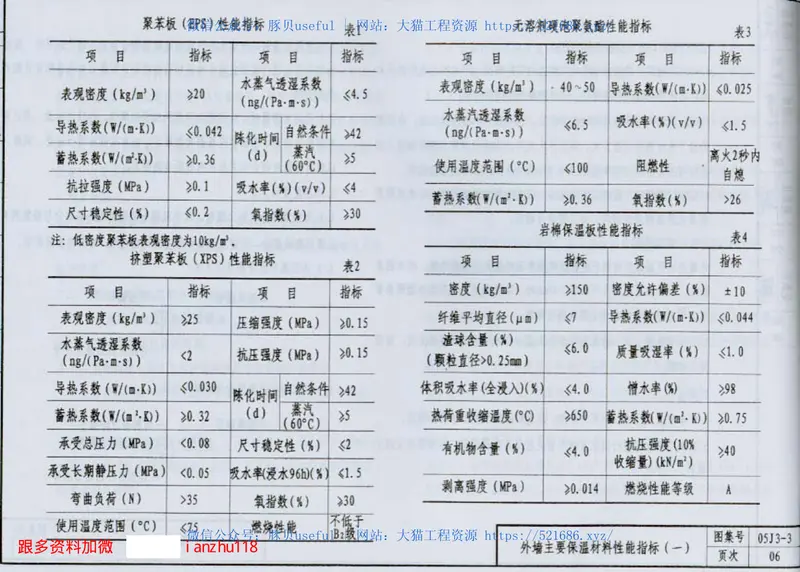 聚苯板(EPS)性能指标
表1
微信公众号：豚贝useful | 网站：大猫工程资源 https://521686.xyz/
项 目 指标 项 目 指标
表观密度(kg/m³) ≥20 水蒸气透湿系数(ng/(Pa·m·s)) ≤4.5
导热系数(W/(m·K)) ≤0.042 陈化时间(d) 自然条件 ≥42
蓄热系数(W/(m²·K)) ≥0.36 蒸汽(60℃) ≥5
抗拉强度(MPa) ≥0.1 吸水率(%)(v/v) ≤4
尺寸稳定性(%) ≤0.2 氧指数(%) ≥30
注: 低密度聚苯板表观密度为10kg/m³.
挤塑聚苯板(XPS)性能指标
表2
项 目 指标 项 目 指标
表观密度(kg/m³) ≥25 压缩强度(MPa) ≥0.15
水蒸气透湿系数(ng/(Pa·m·s)) <2 抗压强度(MPa) ≥0.15
导热系数(W/(m·K)) <0.030 陈化时间(d) 自然条件 ≥42
蓄热系数(W/(m²·K)) ≥0.32 蒸汽(60℃) ≥5
承受总压力(MPa) <0.08 尺寸稳定性(%) ≤2
承受长期静压力(MPa) <0.05 吸水率(浸水96h)(%) ≤1.5
弯曲负荷(N) >35 氧指数(%) ≥30
使用温度范围(℃) ≤75 燃烧性能 不低于B₂级
无溶剂硬泡聚氨酯性能指标
表3
项 目 指标 项 目 指标
表观密度(kg/m³) 40~50 导热系数(W/(m·K)) ≤0.025
水蒸气透湿系数(ng/(Pa·m·s)) ≤6.5 吸水率(%)(v/v) ≤1.5
使用温度范围(℃) ≤100 阻燃性 离火2秒内自熄
蓄热系数(W/(m²·K)) >0.36 氧指数(%) >26
岩棉保温板性能指标
表4
项 目 指标 项 目 指标
密度(kg/m³) ≥150 密度允许偏差(%) ±10
纤维平均直径(μm) ≤7 导热系数(W/(m·K)) ≤0.044
渣球含量(%)(颗粒直径>0.25mm) ≤6.0 质量吸湿率(%) ≤1.0
体积吸水率(全浸入)(%) ≤4.0 憎水率(%) ≥98
热荷重收缩温度(℃) ≥650 蓄热系数(W/(m²·K)) ≥0.75
有机物含量(%) ≤4.0 抗压强度(10%收缩量)(kN/m²) ≥40
剥离强度(MPa) ≥0.014 燃烧性能等级 A
微信公众号：豚贝useful | 网站：大猫工程资源 https://521686.xyz/
跟多资料加微 ianzhu118
外墙主要保温材料性能指标(一)
图集号 05J3-3
页次 06